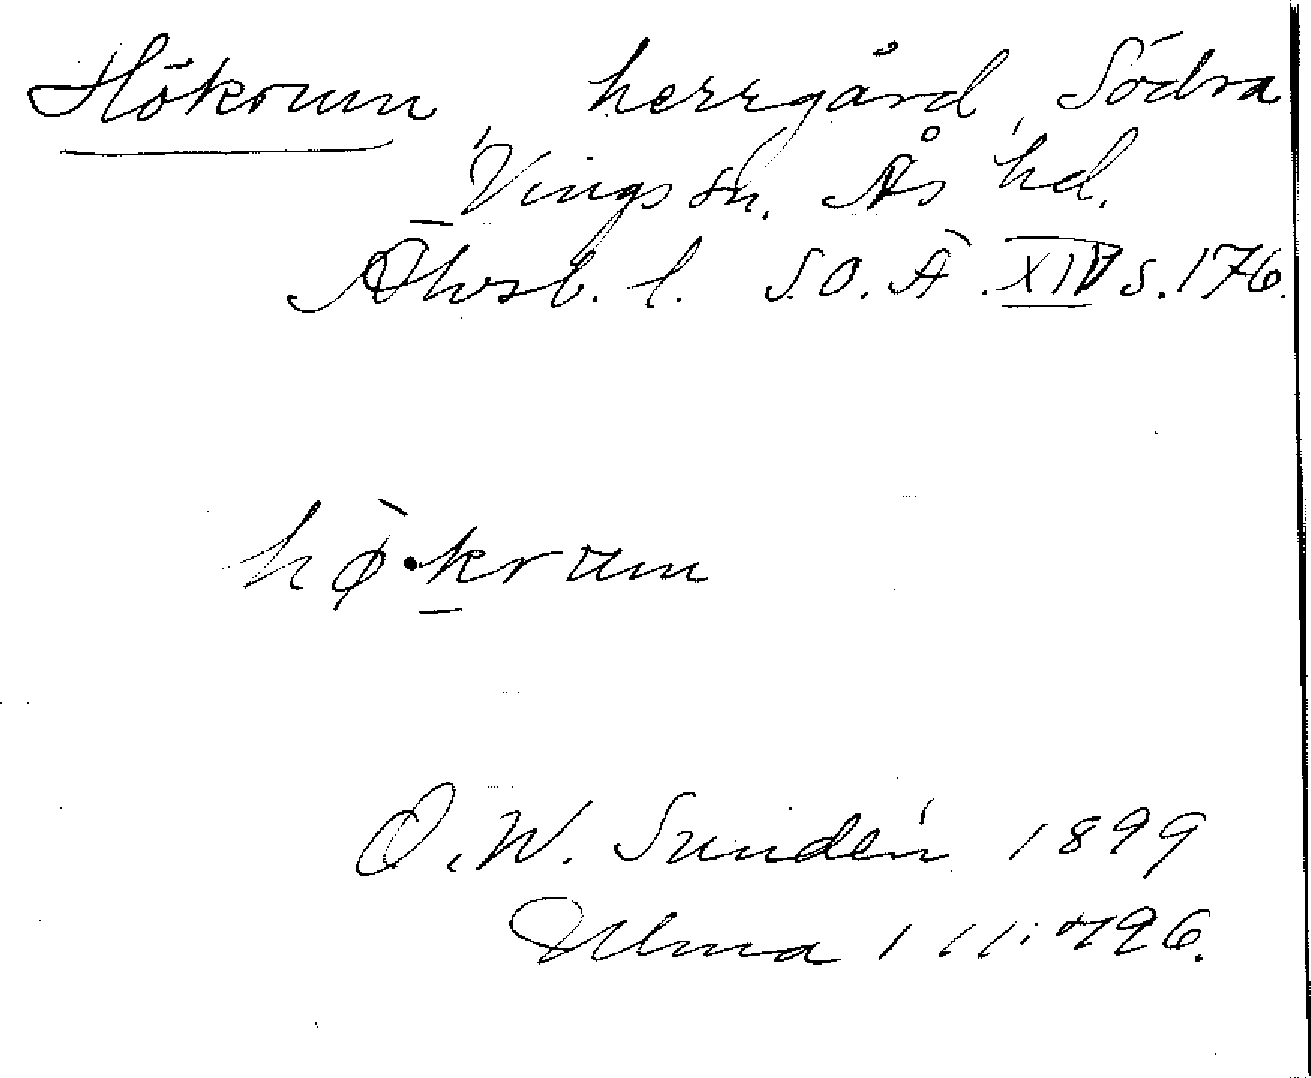 Hökrum, herrgård, Södra
Vings sn. Ås hd.
Älvsb. l. S.O.Ä. XIV s. 176.
hø̀·krum
O. W. Sundén 1899
Ulma 111:796.